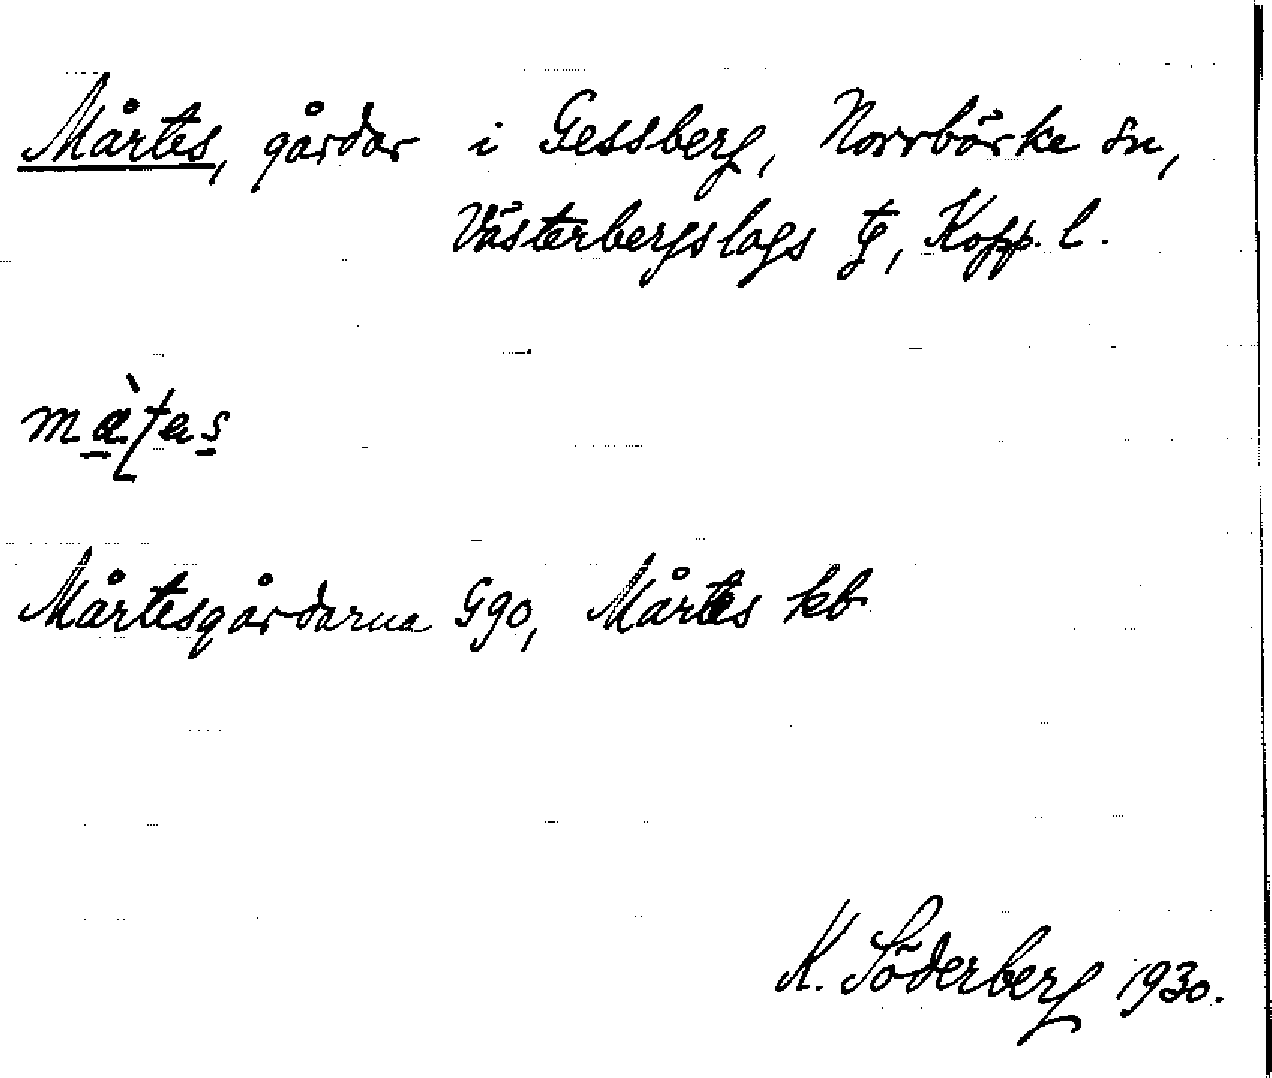 Mårtes, gårdar i Gessberg, Norrbärke sn,
Västerbergslags tg, Kopp. l.
Mårtesgårdarna Ggo, Mårtes kb
K. Söderberg 1930.